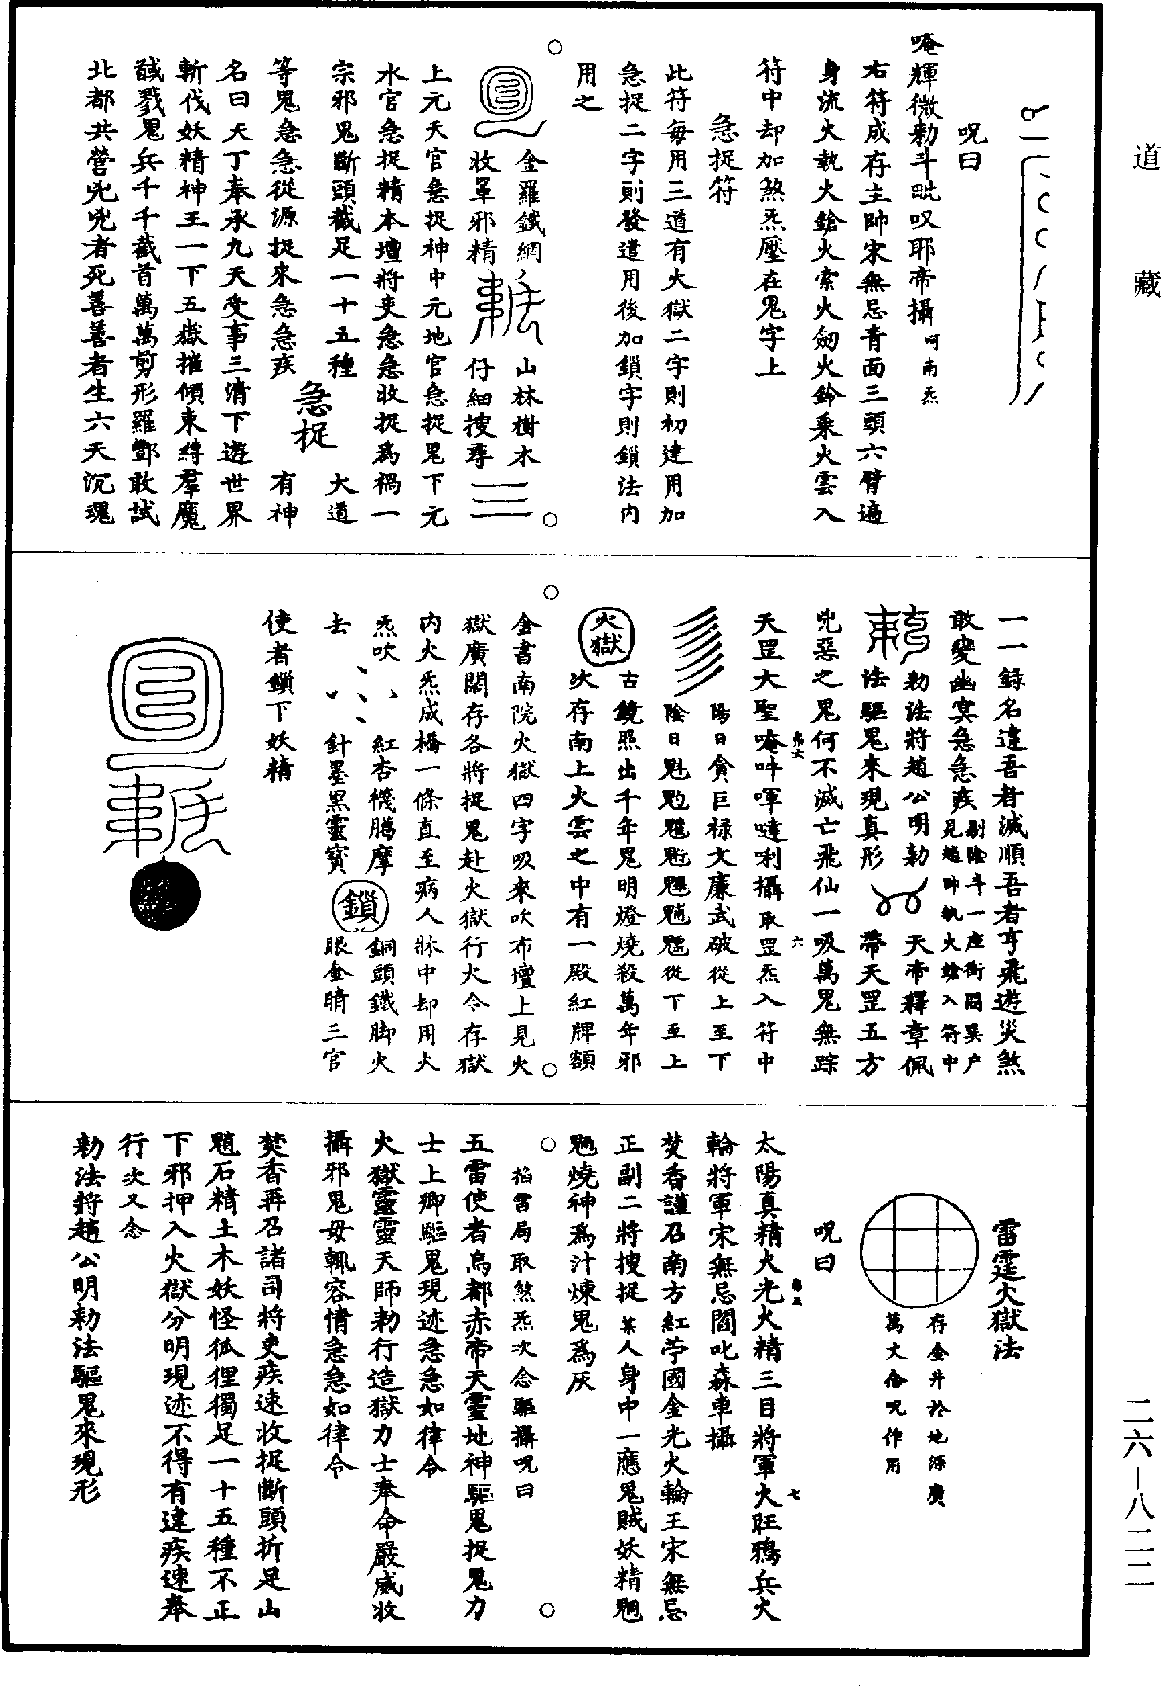 道藏
呪曰
唵輝微勑斗毗叹耶帝攝呵南炁
右符成存主帥宋無忌青面三頭六臂遍
身流火執火鎗火索火劒火鈴乘火雲入
符中却加煞炁壓在鬼字上
急捉符
此符每用三道有火獄二字則初建用加
急捉二字則發遣用後加鎖字則鎖法內
用之
金羅鐵網山林樹木
收罩邪精仔細搜尋
上元天官急捉神中元地官急捉鬼下元
水官急捉精本壇將吏急急收捉為禍一
宗邪鬼斷頭截足一十五種大道
急捉
等鬼急急從源捉來急急疾有神
名曰天丁奉承九天受事三清下遊世界
斬伐妖精神王一下五嶽摧傾束縛羣魔
馘戮鬼兵千千截首萬萬剪形羅酆敢試
北都共營兇兇者死善善者生六天沉魂
一一錄名違吾者滅順吾者亨飛遊災煞
敢變幽冥急急疾剔除斗一座衝閻罡户
見趙帥執火鎗入符中
勑法將趙公明勑天帝釋章佩
法驅鬼來現真形帶天罡五方
兇惡之鬼何不滅亡飛仙一吸萬鬼無踪
天罡大聖唵吽㖇噠唎攝取罡炁入符中
陽日貪巨祿文廉武破從上至下
陰日魁𩲃魓從下至上
火獄
古鏡照出千年鬼明燈燒殺萬年邪
次存南上火雲之中有一殿紅牌額
金書南院火獄四字吸來吹布壇上見火
獄廣闊存各將捉鬼赴火獄行火令存獄
內火炁成橋一條直至病人牀中却用火
炁吹紅杏㡬騰摩銅頭鐵脚火
鎖
去針墨黑靈寳眼金睛三官
使者鎖下妖精
雷霆火獄法
存金井於地深廣
萬丈念呪作用
呪曰
太陽真精火光火精三目將軍火旺鴉兵火
輪將軍宋無忌閻叱森車攝
焚香謹召南方紅苧國金光火輪王宋無忌
正副二將搜捉某人身中一應鬼賊妖精魍
魎燒神為汁煉鬼為灰
掐雷局取煞炁次念驅攝呪曰
五雷使者烏都赤帝天靈地神驅鬼捉鬼力
士上卿驅鬼現迹急急如律令
火獄靈靈天師勑行造獄力士奉命嚴威收
攝邪鬼毋輒容情急急如律令
焚香再召諸司將吏疾速收捉斷頭折足山
魈石精土木妖怪狐狸獨足一十五種不正
下邪押入火獄分明現迹不得有違疾速奉
行次又念
勑法將趙公明勑法驅鬼來現形
二六—八二二